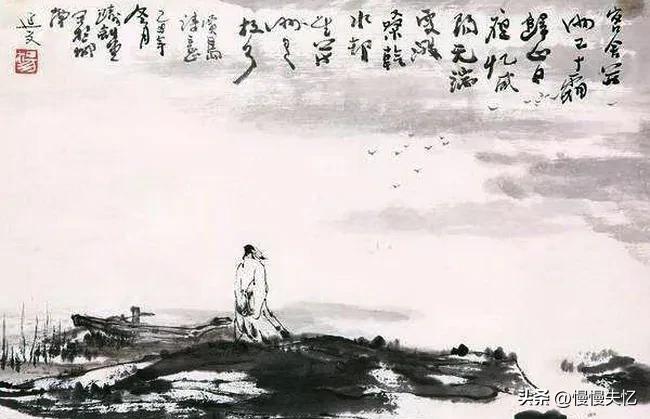 客舍并
州已十霜
歸心日
夜憶咸
陽無端
更渡
桑乾
水却
望并
州是
故鄉
賈島
詩意
乙丑年
冬月
延文
头条 @慢慢失忆